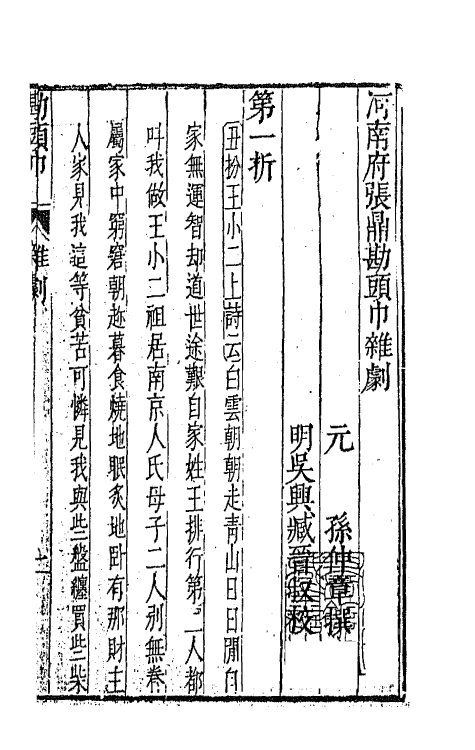 河南府張鼎勘頭巾雜劇
元 孫仲章撰
明吳興臧晉叔校
第一折
丑扮王小二上詩云白雲朝朝走青山日日閒自
家無運智却道世途艱自家姓王排行第二人都
叫我做王小二祖居南京人氏母子二人别無眷
屬家中窮窘朝趂暮食燒地眠炙地卧有那財主
人家見我這等貧苦可憐見我與些盤纏買些柴
勘頭巾 雜劇 一